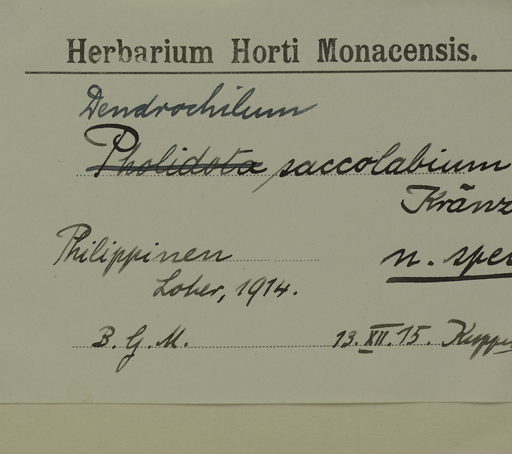 Herbarium Horti Monacensis.
Dendrochilum
Pholidota saccolabium
Kränz
Philippinen
n. spe
Loher, 1914.
B. G. M. 13. XII. 15.